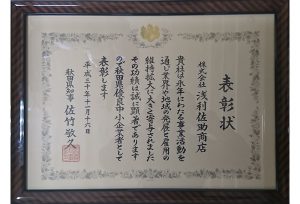 表彰状
株式会社 浅利佐助商店
貴社は永年にわたる事業活動を
通じ業界や地域の発展と雇用の
維持拡大に大きく寄与されました
その功績は誠に顕著であります
ので秋田県優良中小企業者として
表彰します
平成三十年十一月十六日
秋田県知事 佐竹敬久